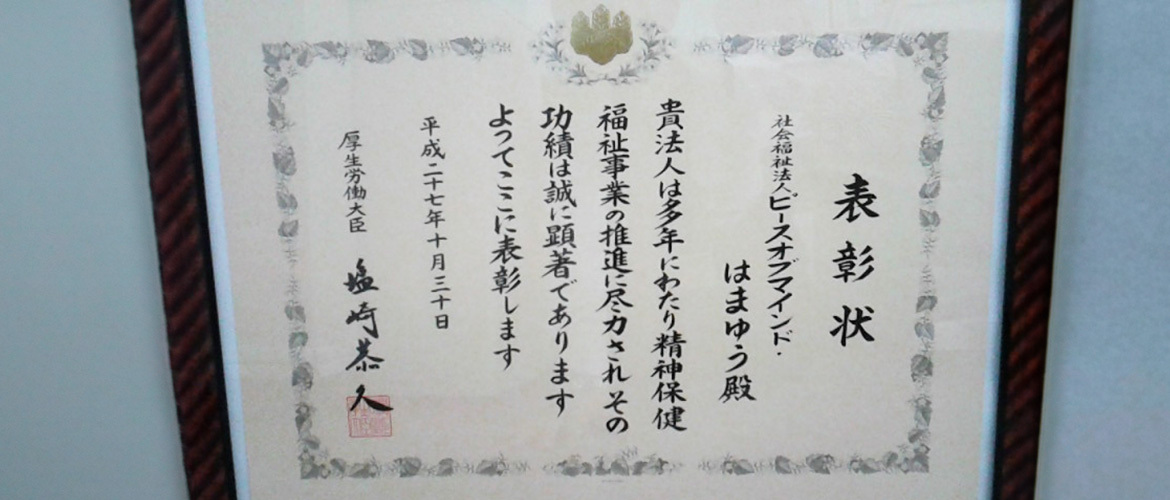 表彰状
社会福祉法人ピースオブマインド・
はまゆう殿
貴法人は多年にわたり精神保健
福祉事業の推進に尽力されその
功績は誠に顕著であります
よってここに表彰します
平成二十七年十月三十日
厚生労働大臣 塩崎恭久